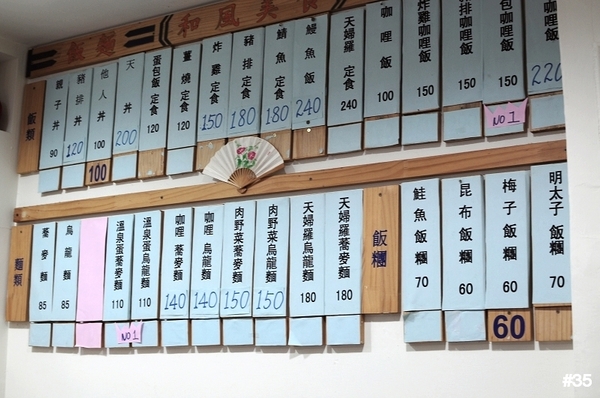 飯麵 和風美食
飯類
親子丼 90
豬排丼 120
他人丼 100
100
天丼 200
蛋包飯定食 120
薑燒定食 120
炸雞定食 150
豬排定食 180
鯖魚定食 180
鰻魚飯 240
天婦羅定食 240
咖哩飯 100
炸雞咖哩飯 150
排咖哩飯 150
包咖哩飯 150
NO 1
咖哩飯 220
麵類
蕎麥麵 85
烏龍麵 85
溫泉蛋蕎麥麵 110
溫泉蛋烏龍麵 110
NO 1
咖哩蕎麥麵 140
咖哩烏龍麵 140
肉野菜蕎麥麵 150
肉野菜烏龍麵 150
天婦羅烏龍麵 180
天婦羅蕎麥麵 180
飯糰
鮭魚飯糰 70
昆布飯糰 60
梅子飯糰 60
60
明太子飯糰 70
#35